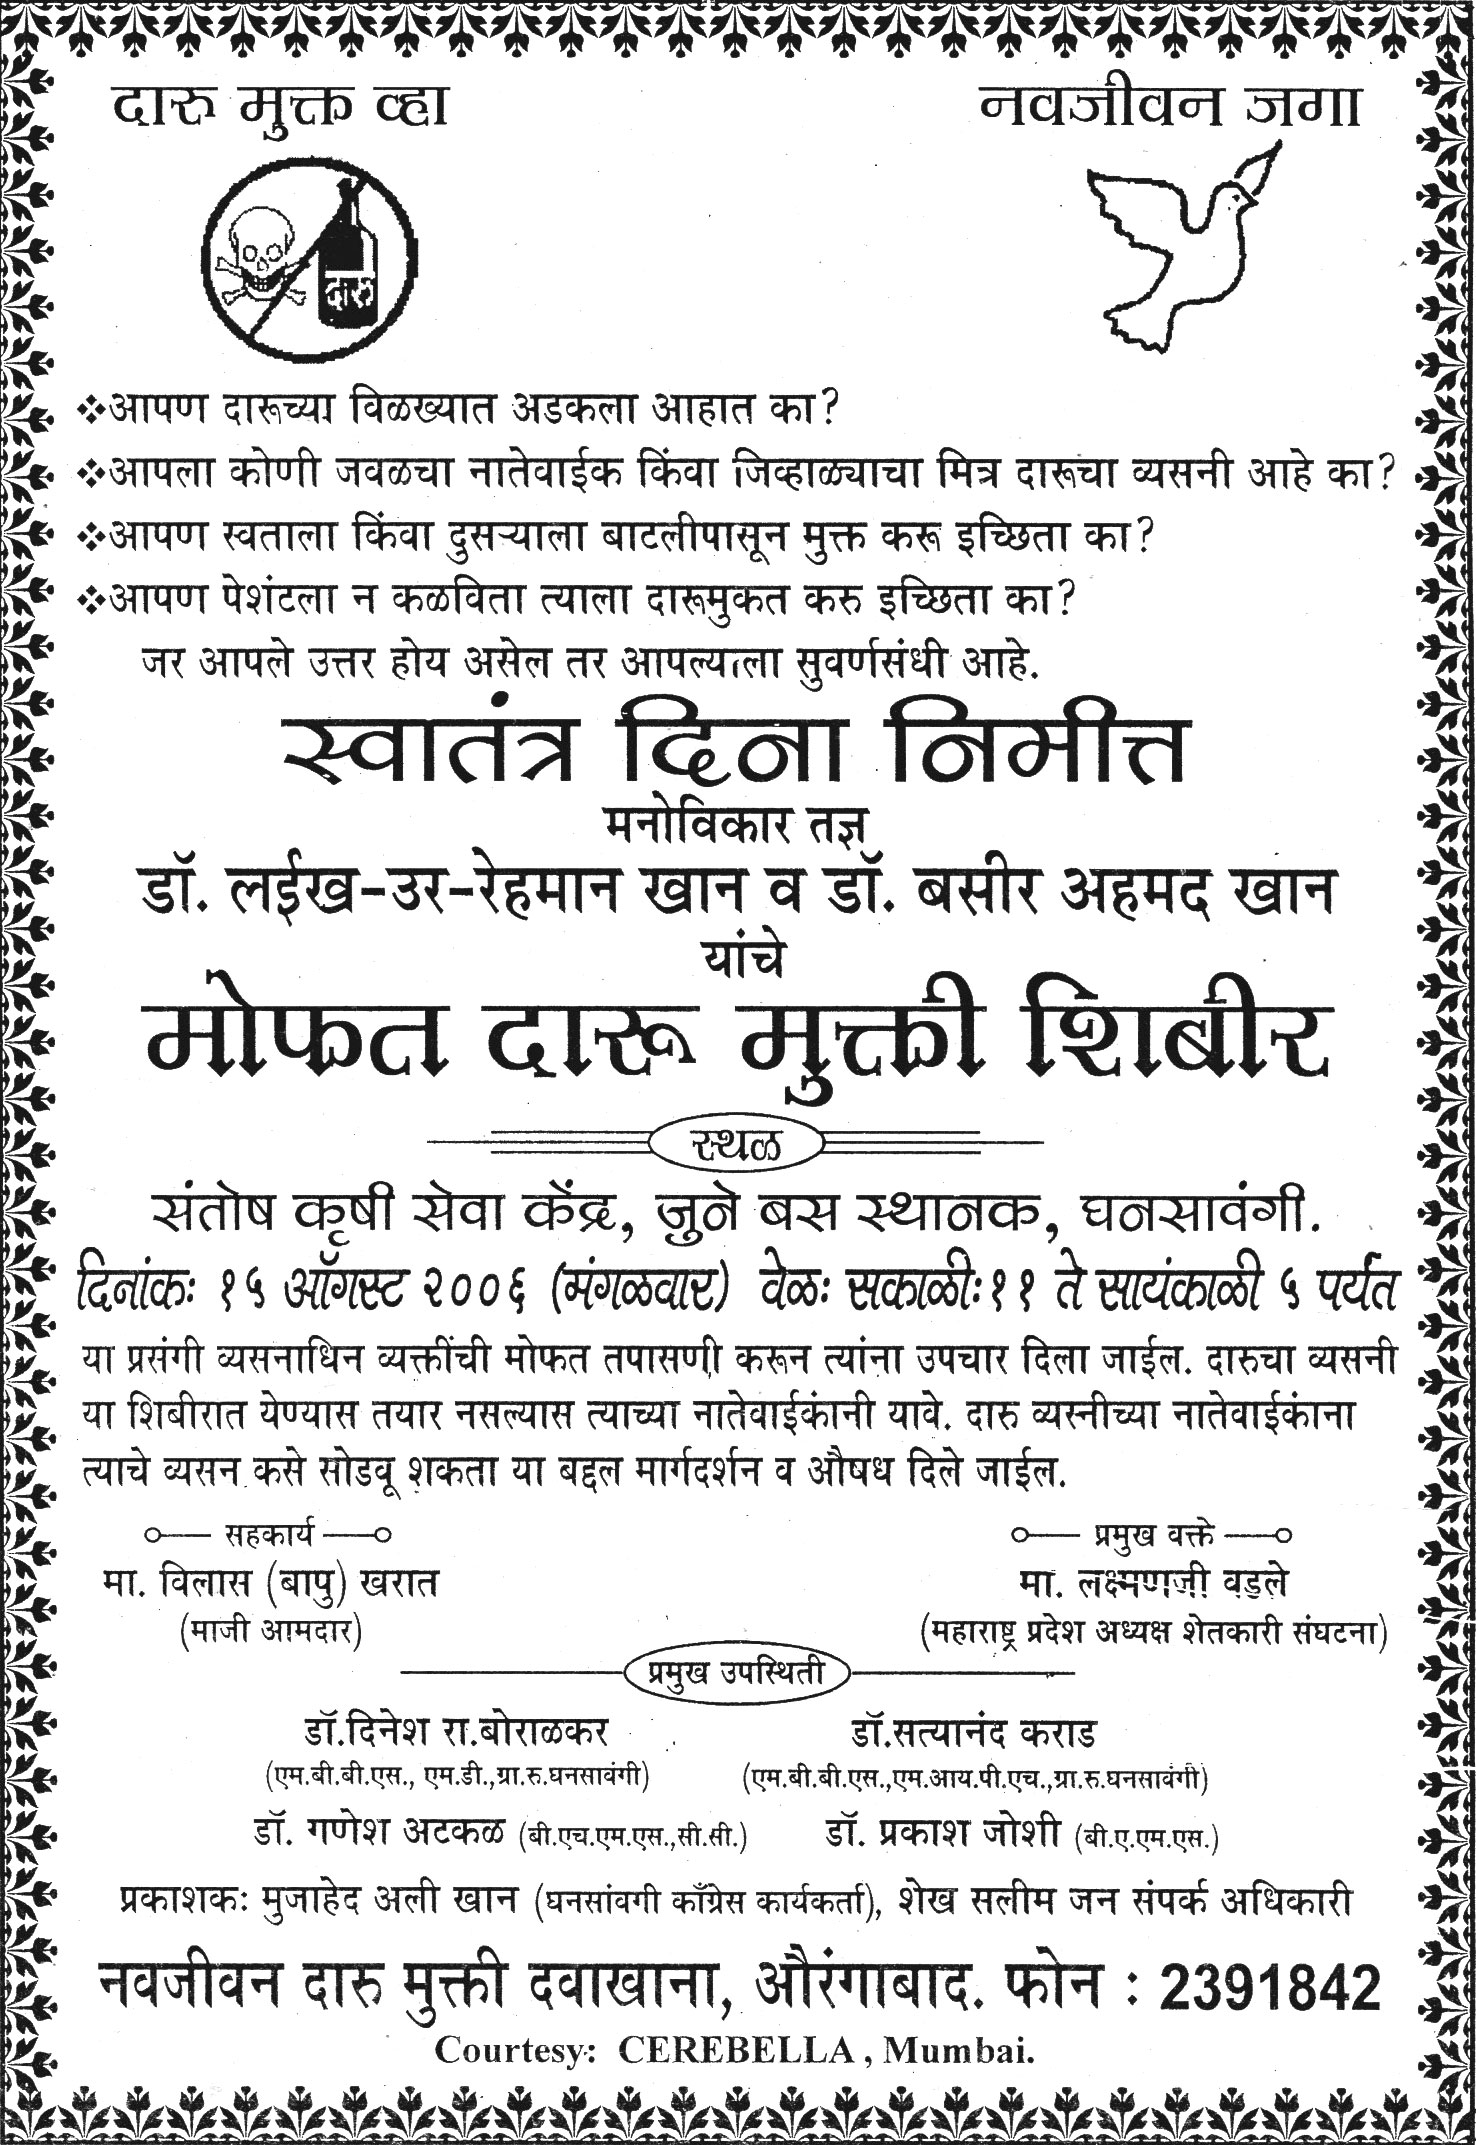 दारु मुक्त व्हा
नवजीवन जगा
दारु
❖आपण दारूच्या विळख्यात अडकला आहात का?
❖आपला कोणी जवळचा नातेवाईक किंवा जिव्हाळ्याचा मित्र दारूचा व्यसनी आहे का?
❖आपण स्वताला किंवा दुसऱ्याला बाटलीपासून मुक्त करू इच्छिता का?
❖आपण पेशंटला न कळविता त्याला दारूमुकत करु इच्छिता का?
जर आपले उत्तर होय असेल तर आपल्याला सुवर्णसंधी आहे.
स्वातंत्र दिना निमीत्त
मनोविकार तज्ञ
डॉ. लईख-उर-रेहमान खान व डॉ. बसीर अहमद खान
यांचे
मोफत दारू मुक्ती शिबीर
स्थळ
संतोष कृषी सेवा केंद्र, जुने बस स्थानक, घनसावंगी.
दिनांकः १५ ऑगस्ट २००६ (मंगळवार) वेळः सकाळीः११ ते सायंकाळी ५ पर्यत
या प्रसंगी व्यसनाधिन व्यक्तींची मोफत तपासणी करून त्यांना उपचार दिला जाईल. दारुचा व्यसनी
या शिबीरात येण्यास तयार नसल्यास त्याच्या नातेवाईकांनी यावे. दारु व्यस्नीच्या नातेवाईकांना
त्याचे व्यसन कसे सोडवू शकता या बद्दल मार्गदर्शन व औषध दिले जाईल.
सहकार्य
मा. विलास (बापु) खरात
(माजी आमदार)
प्रमुख वक्ते
मा. लक्ष्मणजी वडले
(महाराष्ट्र प्रदेश अध्यक्ष शेतकारी संघटना)
प्रमुख उपस्थिती
डॉ.दिनेश रा.बोराळकर
डॉ.सत्यानंद कराड
(एम.बी.बी.एस., एम.डी.,ग्रा.रु.घनसावंगी)
(एम.बी.बी.एस.,एम.आय.पी.एच.,ग्रा.रु.घनसावंगी)
डॉ. गणेश अटकळ (बी.एच.एम.एस.,सी.सी.)
डॉ. प्रकाश जोशी (बी.ए.एम.एस.)
प्रकाशकः मुजाहेद अली खान (घनसांवगी काँग्रेस कार्यकर्ता), शेख सलीम जन संपर्क अधिकारी
नवजीवन दारु मुक्ती दवाखाना, औरंगाबाद. फोन : 2391842
Courtesy: CEREBELLA , Mumbai.